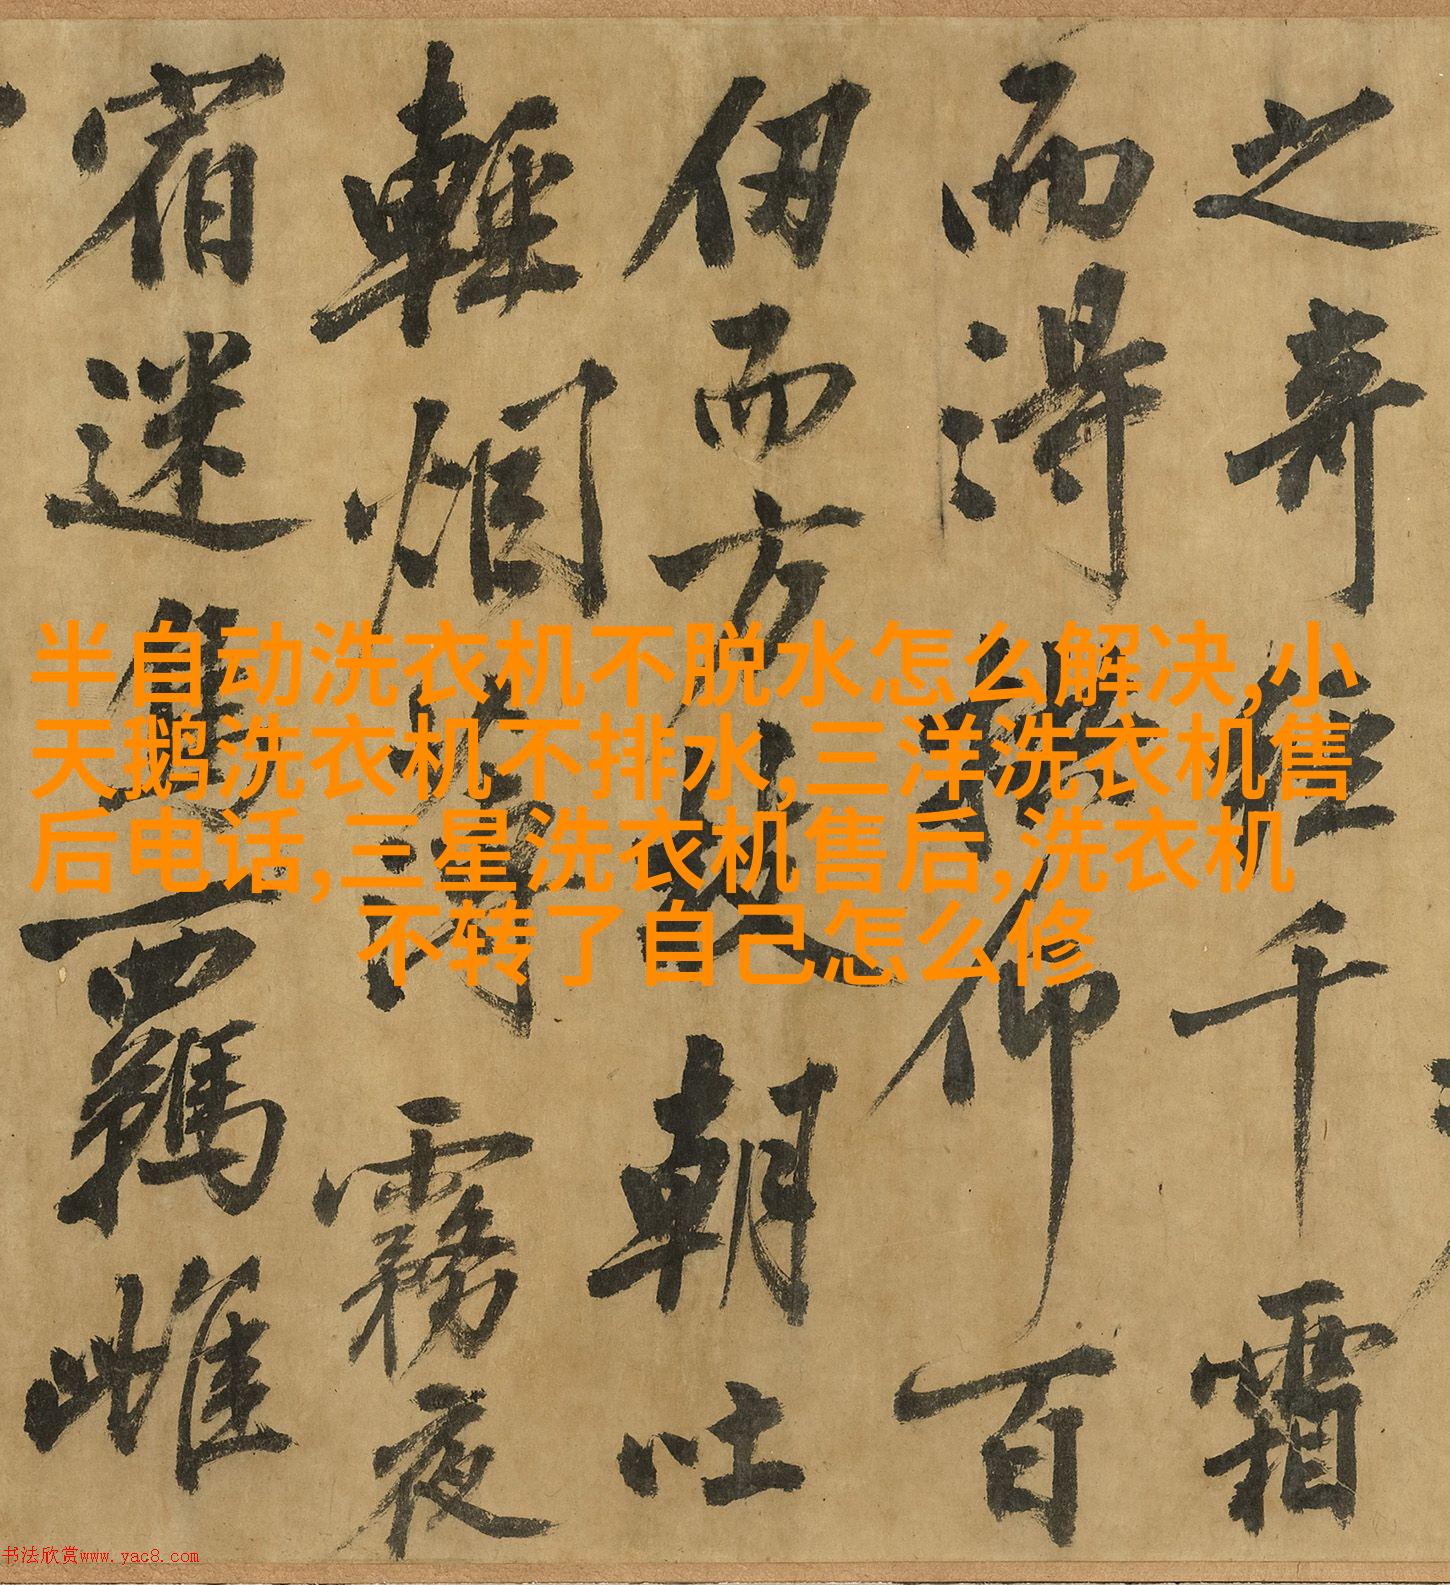 半自动洗衣机不脱水怎么解决,小
天鹅洗衣机不排水,三洋洗衣机售
后电话,三星洗衣机售后,洗衣机
不转了自己怎么修
之奇經千霜
而得仰百
仞而方朝吐
輕烟薄霧夜
宿迷羈雌
书法欣赏www.yac8.com